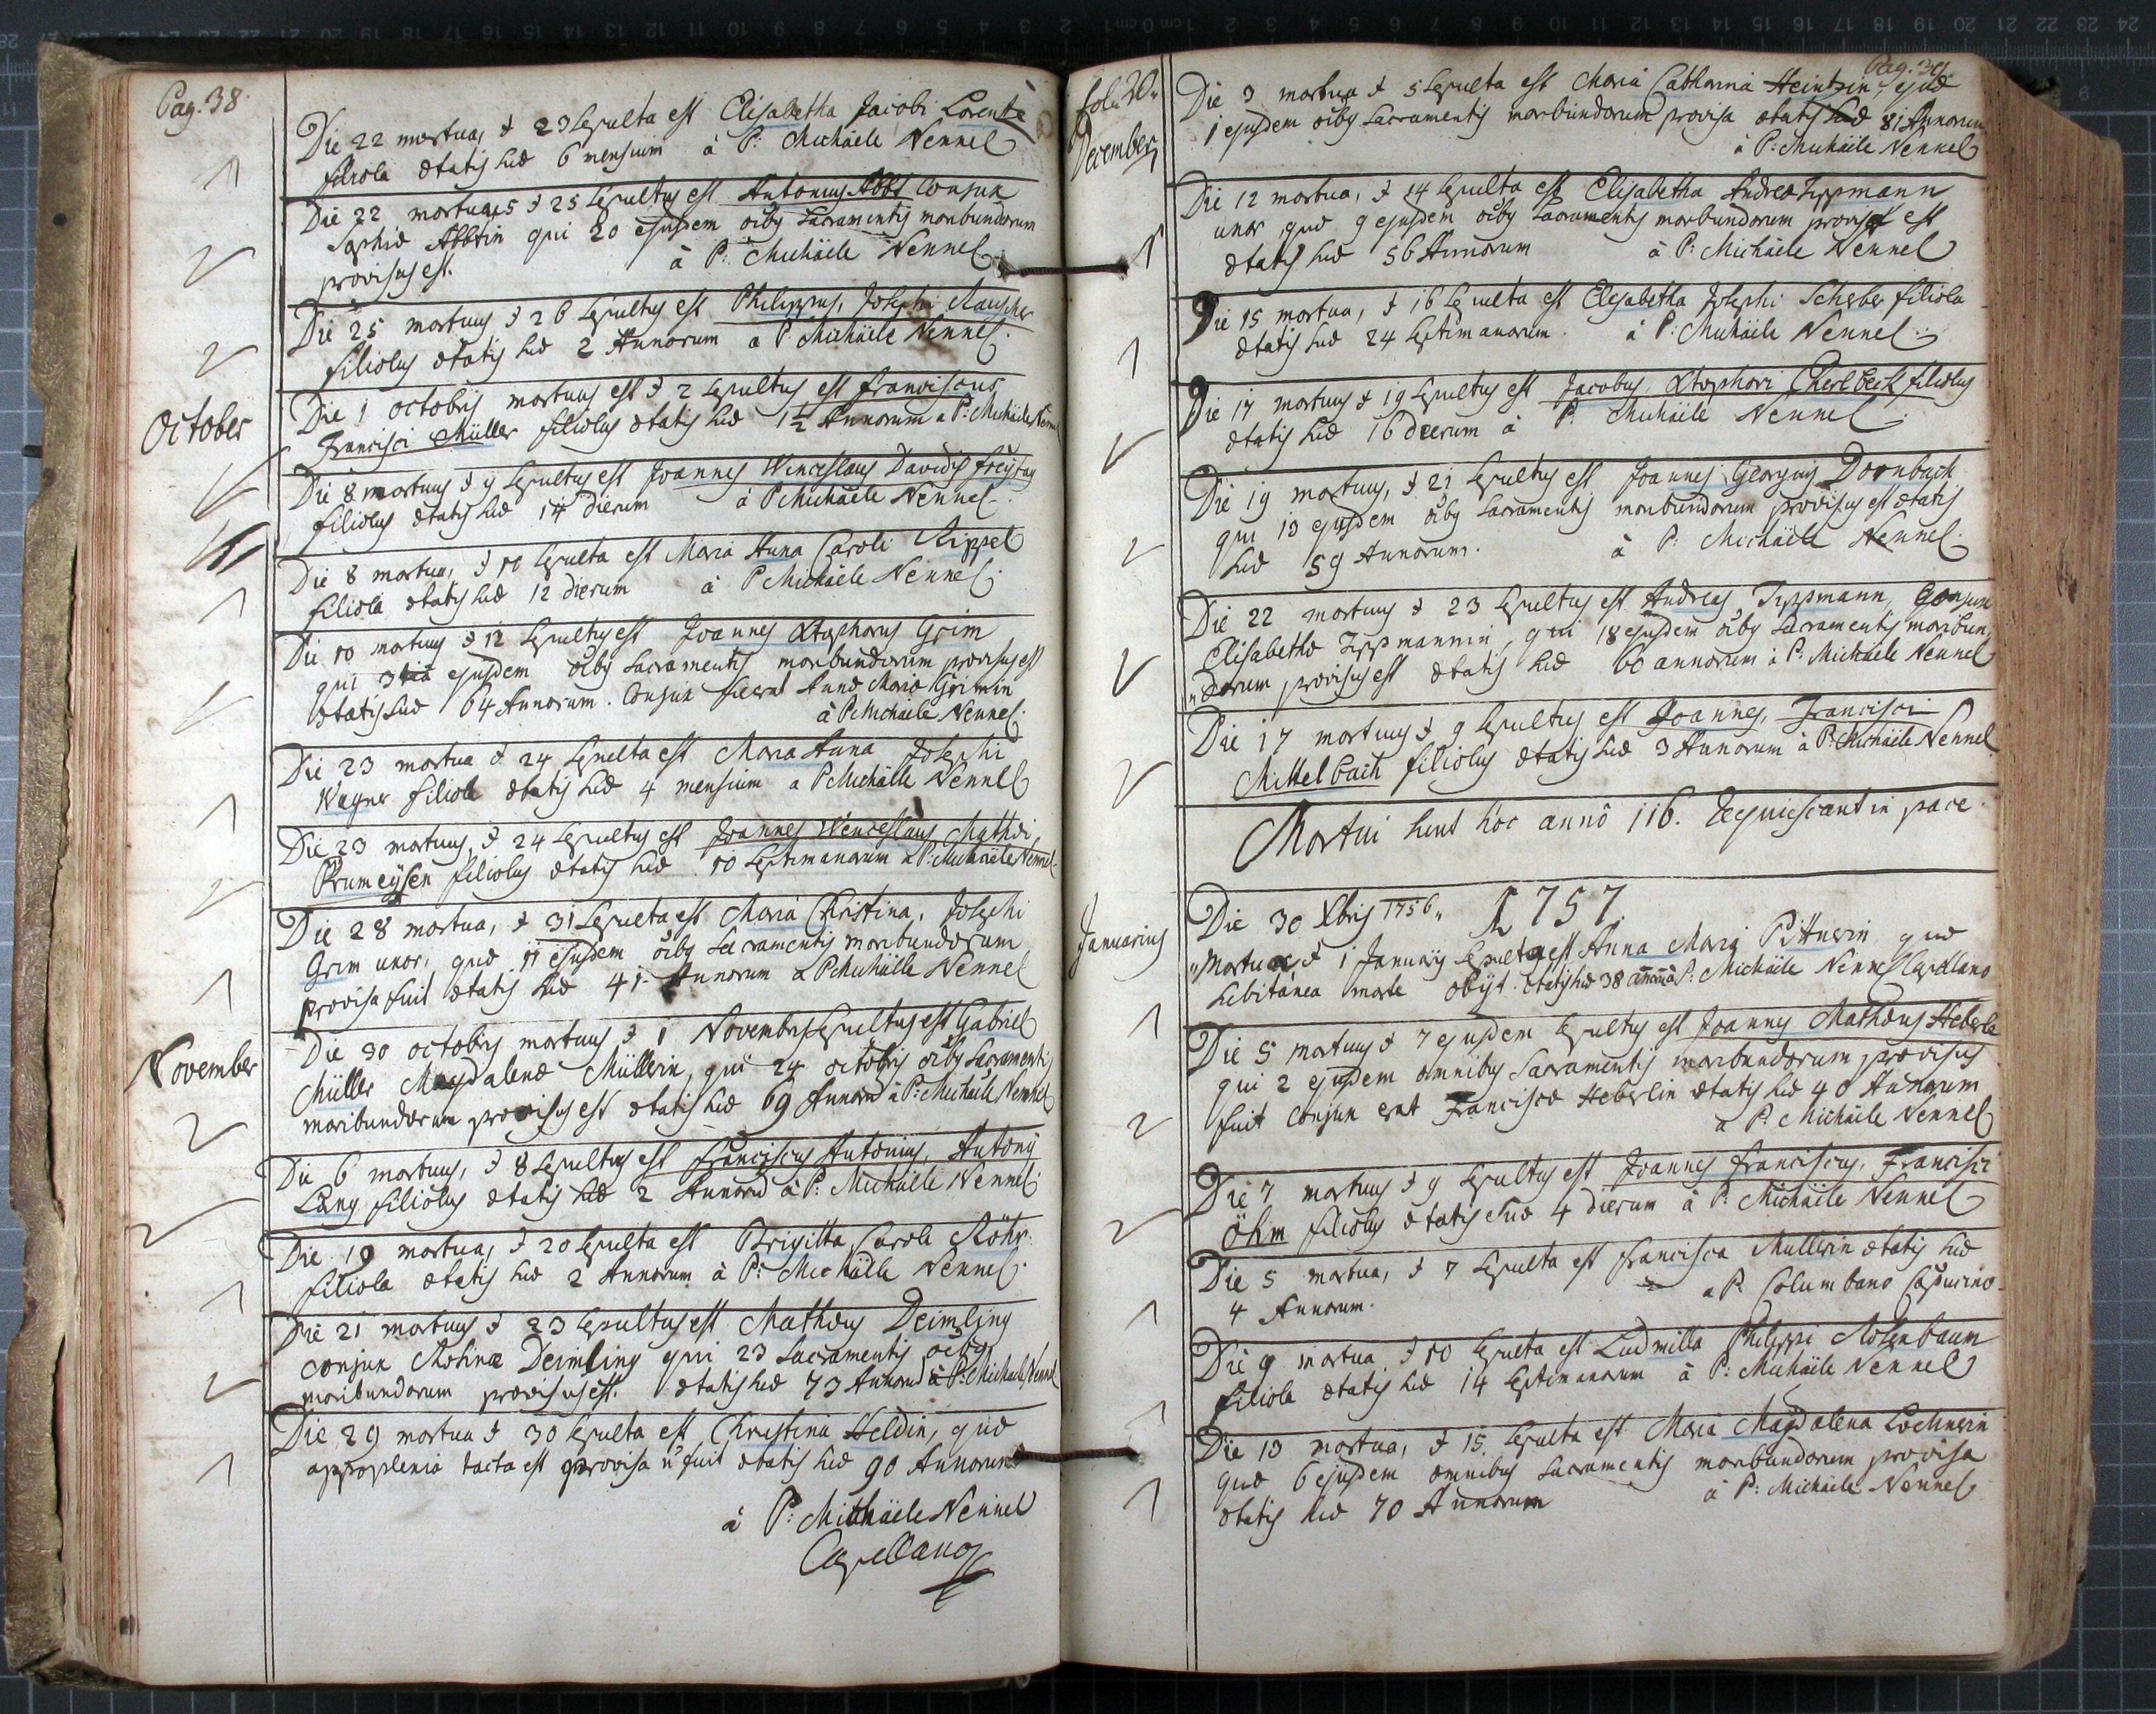 Pag. 38
Die 22 mortua, & 23 Sepulta est Elisabetha Jacobi Lorentz
filiola ætatis suæ 6 mensium à P: Michäele Nennel
Die 22 mortuus & 25 Sepultus est Antonius Abbt Conjux
Sophiæ Abbtin qui 20 ejusdem oibg Sacramentis moribundorum
provisus est. à P: Michäele Nennel
Die 25 mortuus & 26 Sepultus est Philippus, Josephi Rauscher
filiolus ætatis suæ 2 Annorum à P: Michäele Nennel
October
Die 1 octobris mortuus est & 2 Sepultus est Franciscus
Francisci Müller filiolus ætatis suæ 1½ Annorum a P: Michäele Nennel
Die 8 mortuus & 9 Sepultus est Joannes Wenceslaus Davidis Freÿtag
filiolus ætatis suæ 14 dierum à P Michäele Nennel
Die 8 mortua, & 10 Sepulta est Maria Anna Caroli Rippel
filiola ætatis suæ 12 dierum à P Michäele Nennel
Die 10 mortuus & 12 Sepultus est Joannes Xtophorus Grim
qui 3tia ejusdem oibg Sacramentis moribundorum provisus est
ætatis suæ 64 Annorum. Conjux fuerat Annæ Mariæ Grimin
à P. Michäele Nennel
Die 23 mortua & 24 Sepulta est Maria Anna Josephi
Wagner filiola ætatis suæ 4 mensium a P Michäele Nennel
Die 23 mortuus, & 24 Sepultus est Joannes Wenceslaus Mathæi
Prumeÿsen filiolus ætatis suæ 10 Septimanarum a P: Michäele Nennel
Die 28 mortua, & 31 Sepulta est Maria Christina, Josephi
Grim uxor, quæ 11 ejusdem oibg Sacramentis moribundorum
provisa fuit ætatis suæ 41 Annorum a P Michäele Nennel
November
Die 30 octobris mortuus & 1 Novembris Sepultus est Gabriel
Müller Magdalenæ Müllerin, qui 24 octobris oibg Sacramentis
moribundorum provisus est ætatis suæ 69 Annorū à P: Michäele Nennel
Die 6 mortuus, & 8 Sepultus est Franciscus Antonius, Antonÿ
Lang filiolus ætatis suæ 2 Annorū à P: Michäele Nennel
Die 19 mortua, & 20 Sepulta est Brigitta Caroli Röhr
filiola ætatis suæ 2 Annorum à P: Michäele Nennel
Die 21 mortuus & 23 Sepultus est Mathæus Deimling
conjux Rosinæ Deimling qui 23 Sacramentis oibg
moribundorum provisus est. ætatis suæ 73 Annorū à P: Michäele Nennel
Die 29 mortua & 30 Sepulta est Christina Heldin, quæ
appoplexia tacta est provisa ñ fuit ætatis suæ 90 Annorum
à P: Michäele Nennel
Capellano
Pag. 39
fol. 20
December
Die 3 mortua & 5 Sepulta est Maria Catharina Heintzin, quæ
1 ejusdem oibg Sacramentis moribundorum provisa ætatis suæ 81 Annorum
à P: Michäele Nennel
Die 12 mortua, & 14 Sepulta est Elisabetha Andreæ Tippmann
uxor, quæ 9 ejusdem oibg Sacramentis moribundorum provisa est
ætatis suæ 56 Annorum à P: Michäele Nennel
Die 15 mortua, & 16 Sepulta est Elisabetha Josephi Scherber filiola
ætatis suæ 24 Septimanarum. à P: Michäele Nennel
Die 17 mortuus & 19 Sepultus est Jacobus, Xtophori Cherlbeck filiolus
ætatis suæ 16 dierum à P: Michäele Nennel
Die 19 mortuus, & 21 Sepultus est Joannes Georgius Dornbach
qui 13 ejusdem oibg Sacramentis moribundorum provisus est ætatis
suæ 59 Annorum. à P: Michäele Nennel
Die 22 mortuus & 23 Sepultus est Andreas Tippmann, Conjux
Elisabethæ Tippmannin, qui 18 ejusdem oibg Sacramentis moribun,
„dorum provisus est ætatis suæ 60 annorum à P: Michäele Nennel
Die 17 mortuus & 9 Sepultus est Joannes, Francisci
Mittelbach filiolus ætatis suæ 3 Annorum à P: Michäele Nennel
Mortui sunt hoc annô 116. Requiescant in pace.
1757
Januarius
Die 30 Xbris 1756„
„Mortua & 1 Januarÿ Sepulta est Anna Maria Pittnerin quæ
subitanea morte obÿt. ætatis suæ 38 annorū à P: Michäele Nennel Capellano
Die 5 mortuus & 7 ejusdem Sepultus est Joannes Mathæus Heberle
qui 2 ejusdem omnibus Sacramentis moribundorum provisus
fuit Conjux erat Franciscæ Heberlin ætatis suæ 40 Annorum
a P: Michäele Nennel
Die 7 mortuus & 9 Sepultus est Joannes Franciscus, Francisci
Öhm filiolus ætatis suæ 4 dierum à P: Michäele Nennel
Die 5 mortua, & 7 Sepulta est Francisca Mullerin ætatis suæ
4 Annorum. a P. Columbano Capucino
Die 9 mortua & 10 Sepulta est Ludmilla Philippi Rosenbaum
filiola ætatis suæ 14 Septimanarum à P: Michäele Nennel
Die 13 mortua, & 15 Sepulta est Maria Magdalena Lochnerin
quæ 6 ejusdem omnibus Sacramentis moribundorum provisa
ætatis suæ 70 Annorum à P: Michäele Nennel